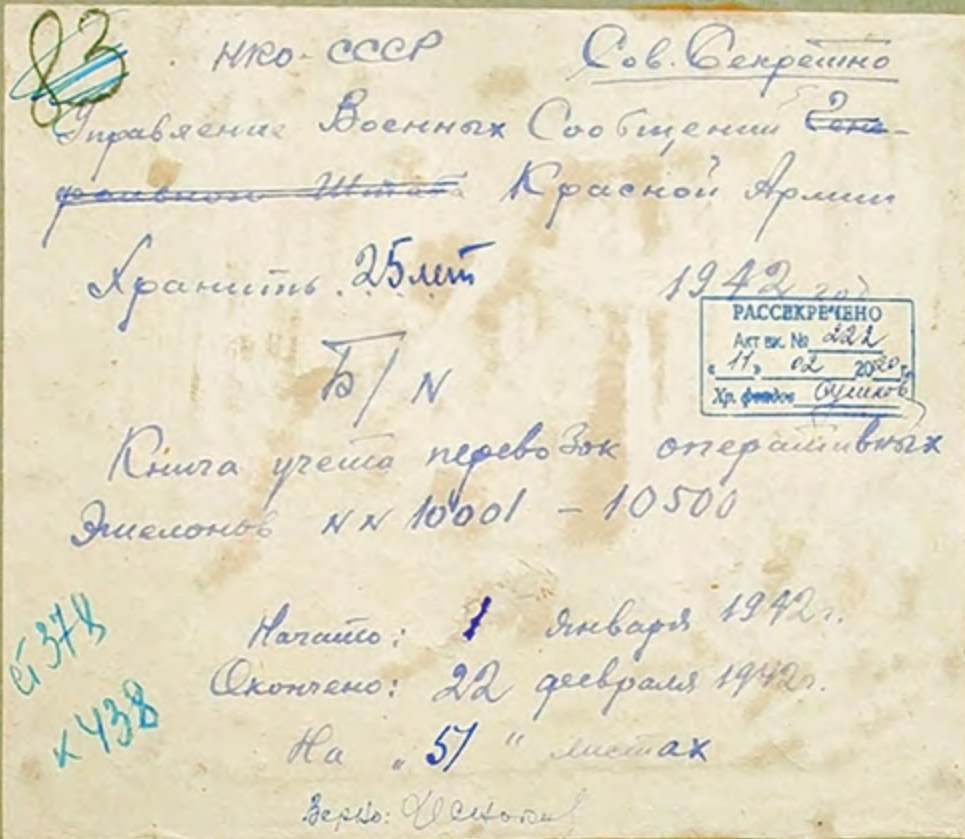 83
НКО-СССР Сов. Секретно
Управление Военных Сообщении Гене-
ральног Штаба Красной Армии
Хранить 25 лет 1942 год
РАССЕКРЕЧЕНО
Акт вх. № 222
"11" 02 2020 г.
Хр. фондов
Б/N
Книга учета перевозок оперативных
Эшелонов NN 10001 - 10500
Начато: 1 января 1942 г.
Окончено: 22 февраля 1942 г.
ст 378
На "51" листах
к 438
Верно: